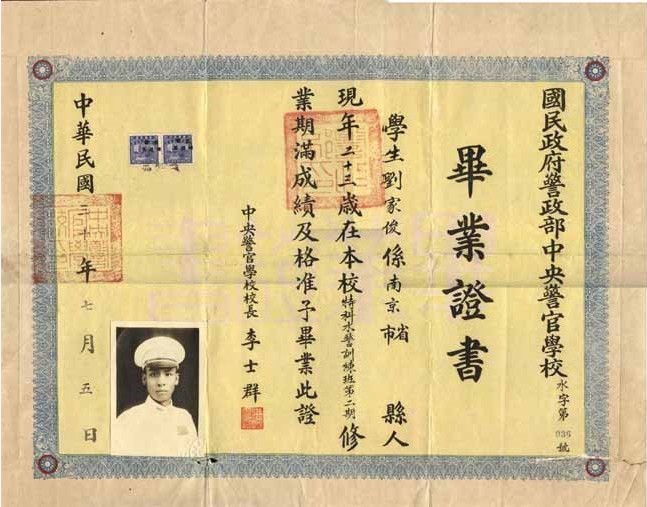 國民政府警政部中央警官學校
水字第036號
畢業證書
學生劉家俊係南京省市縣人
現年二十三歲在本校特科水警訓練班第二期修
業期滿成績及格准予畢業此證
中央警官學校校長李士群
中華民國三十年七月五日